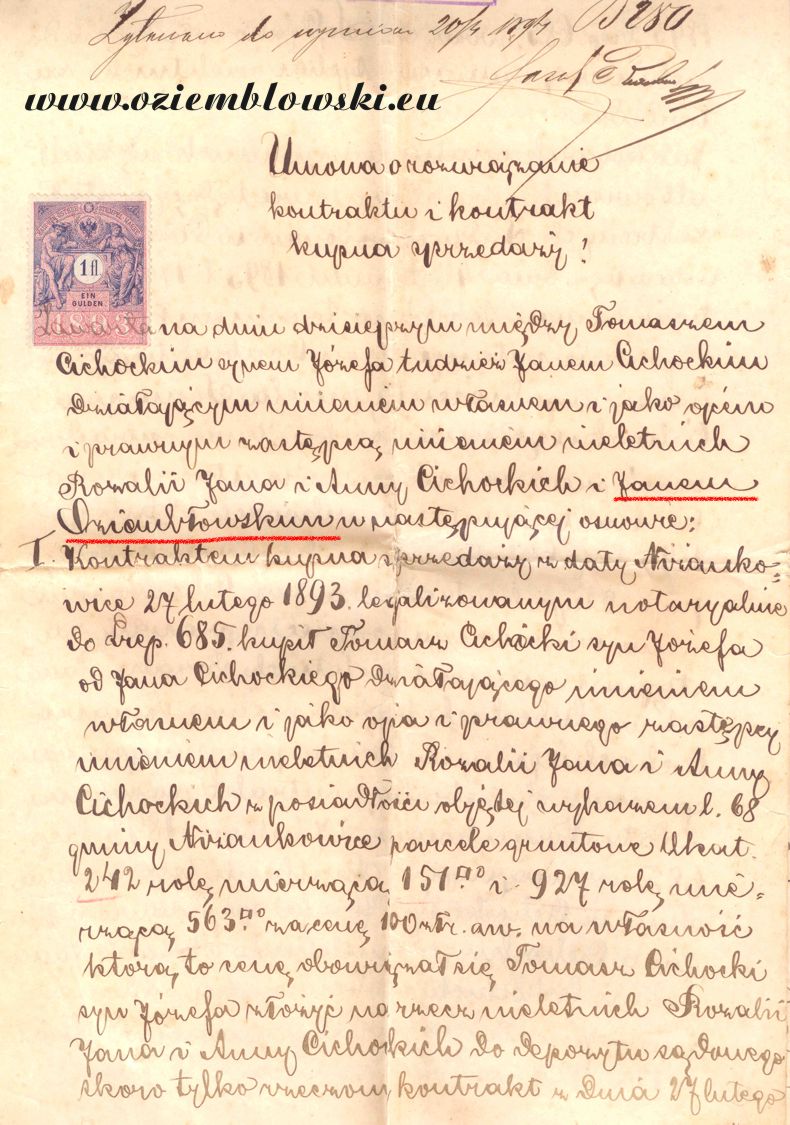 Zgłoszono do wymiaru 20/4 1894 B 280
www.oziemblowski.eu
Umowa o rozwiązanie
kontraktu i kontrakt
kupna sprzedaży!
1 fl
EIN
GULDEN
1893
na dniu dzisiejszym między Tomaszem
Cichockim synem Józefa tudzież Janem Cichockim
Działającym imieniem własnem i jako ojcem
i prawnym zastępcą imieniem nieletnich
Rozalii Jana i Anny Cichockich i Janem
Oziembłowskim w następującej osnowie:
I. Kontraktem kupna sprzedaży z daty Niżanko-
wice 27 lutego 1893. legalizowanym notaryalnie
do Lrep. 685. kupił Tomasz Cichocki syn Józefa
od Jana Cichockiego Działającego imieniem
własnem i jako ojca i prawnego zastępcy
imieniem nieletnich Rozalii Jana i Anny
Cichockich z posiadłości objętej wykazem l. 68
gminy Niżankowice parcele gruntowe lkat.
242 rolę mierzącą 151 i 927 rolę mie-
rzącą 563 za cenę 100 złr. aw. na własność
którą to cenę obowiązał się Tomasz Cichocki
syn Józefa złożyć na rzecz nieletnich Rozalii
Jana i Anny Cichockich do depozytu sądowego
skoro tylko rzeczony kontrakt z Dnia 27 lutego